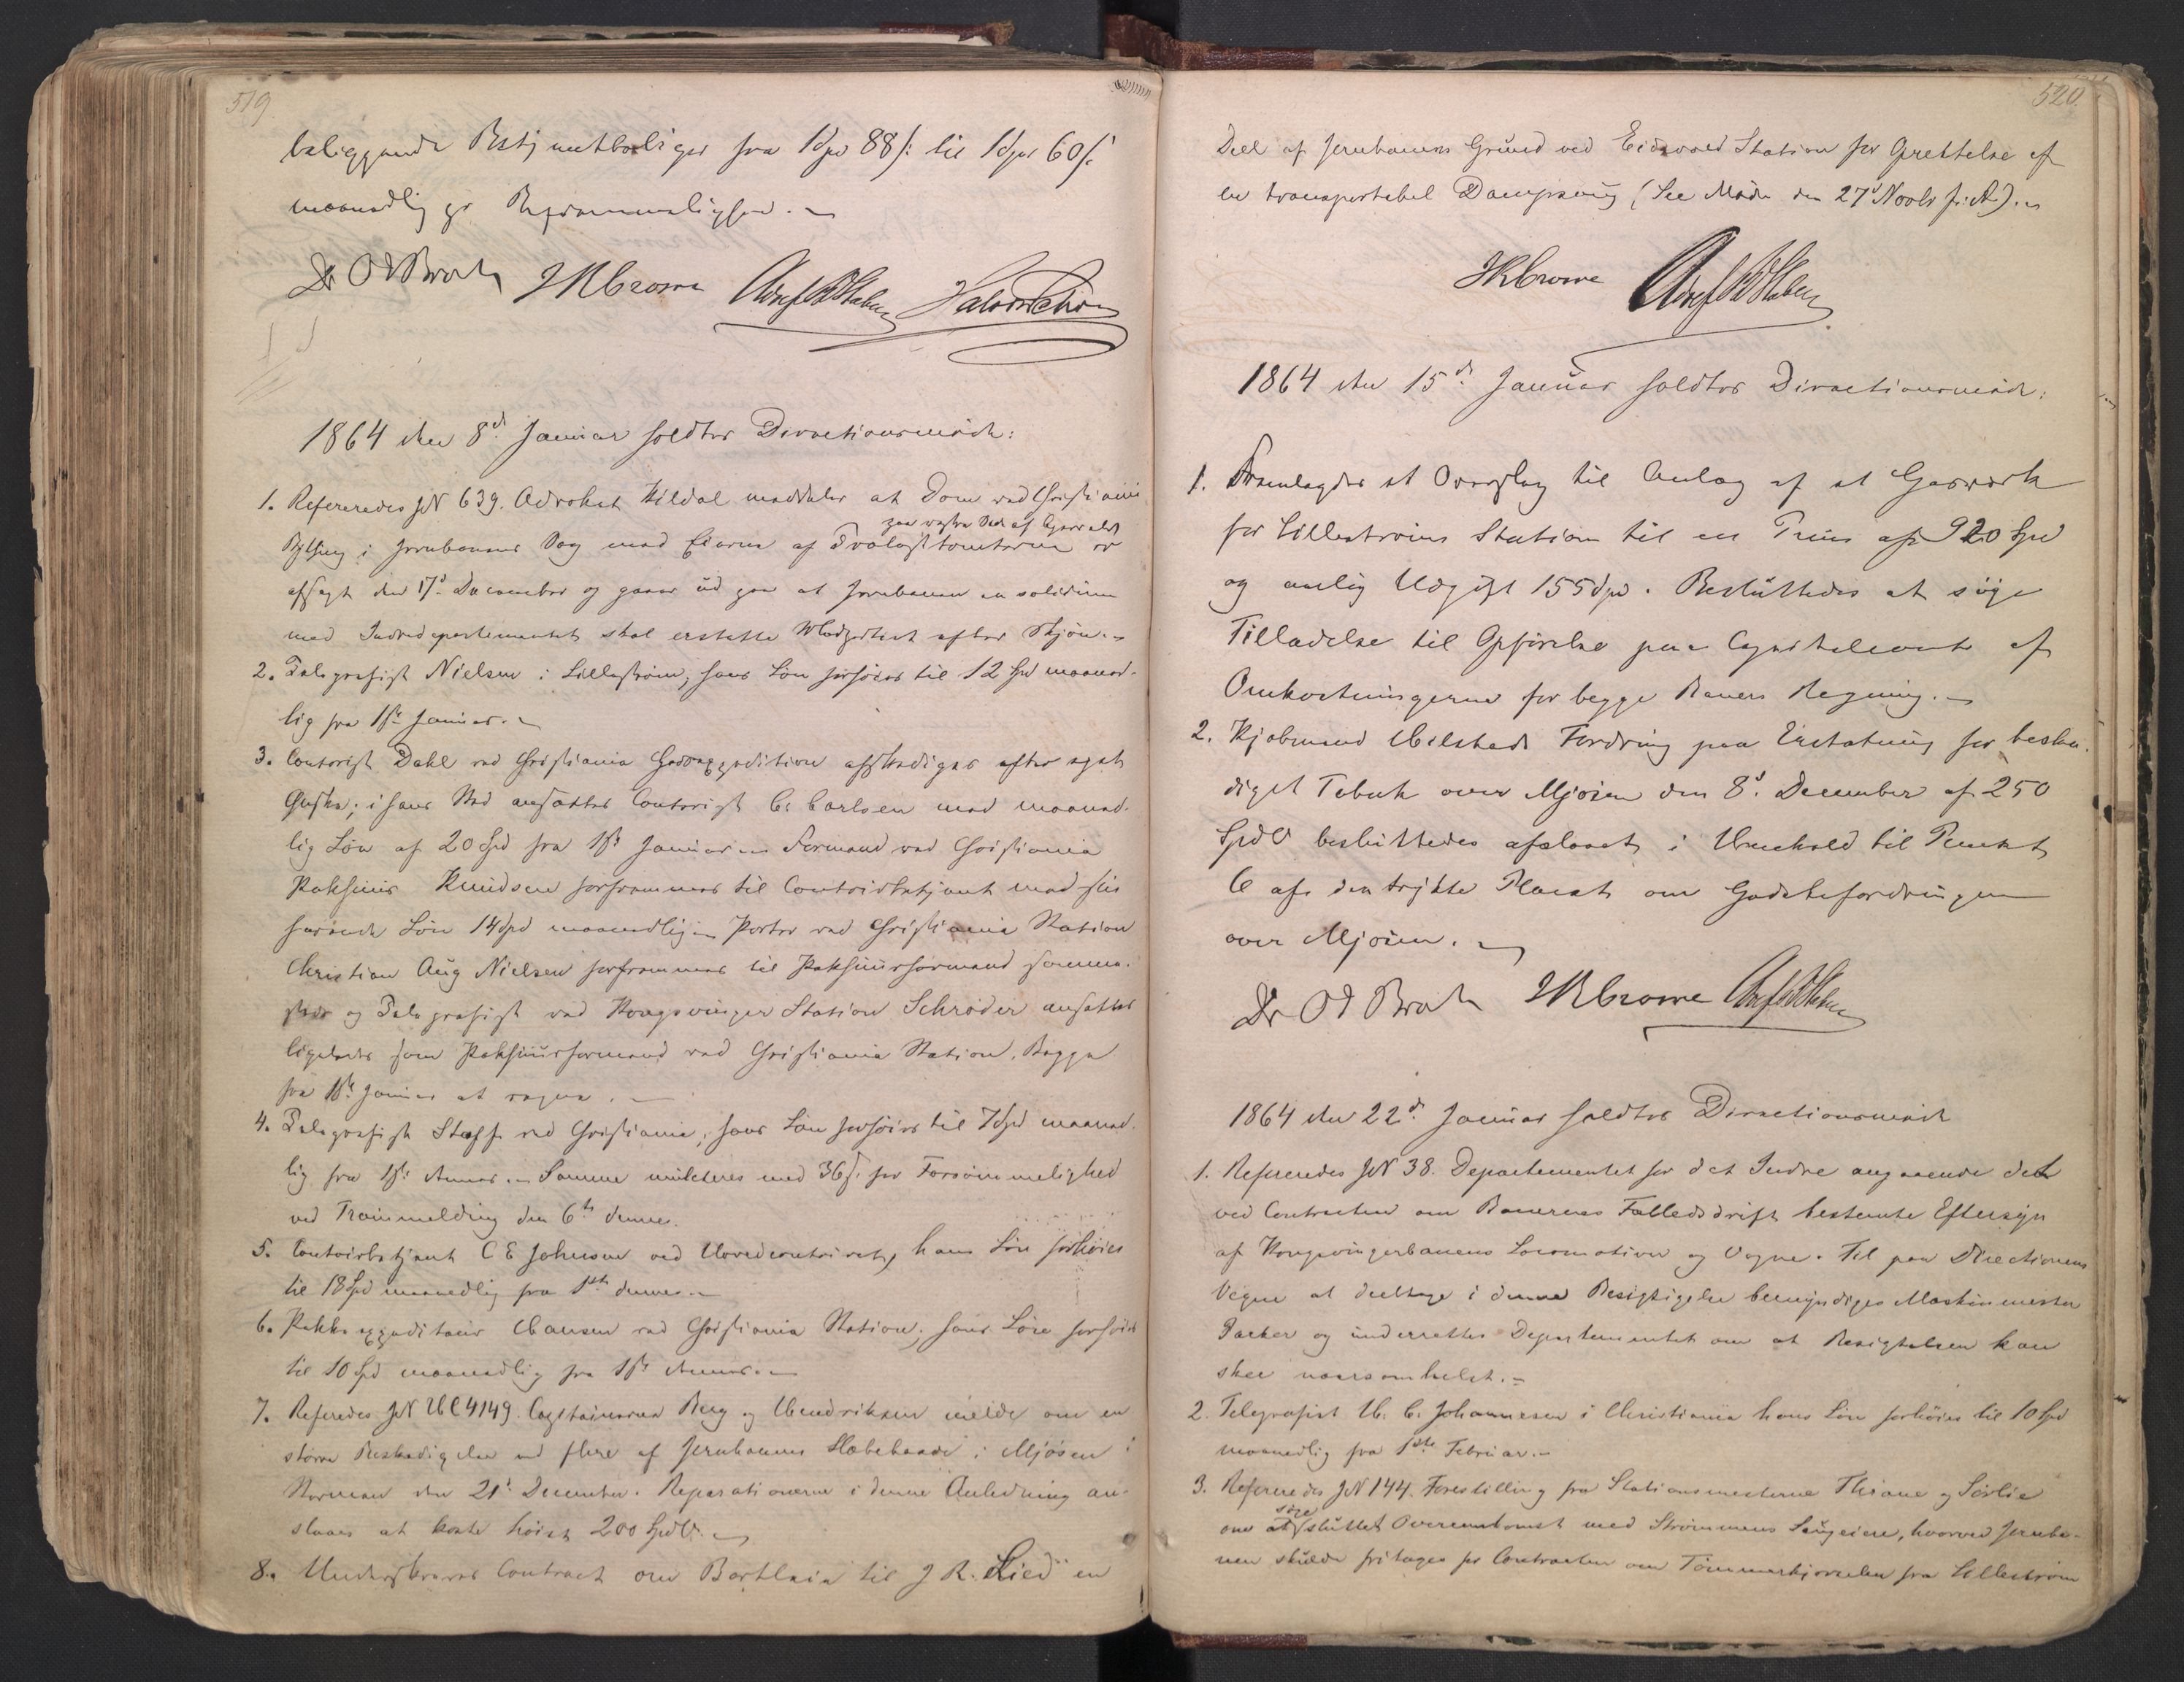 519
beliggende Betjentboliger fra 1 Spd 88 s: til 1 Spd 60 s:
maanedlig pr Beqvemmelighed.
Dr O J Broch JRCrowe Adolf Halvor Schou
1864 den 8d Januar holdtes Directionsmöde:
1. Refereredes JN 639. Advokat Hildal meddeler at Dom ved Christiania
paa vestre Side af Agerselv
Bything i Jernbanens Sag med Eierne af Trælasttomterne er
afsagt den 17d December og gaaer ud paa at Jernbanen in solidum
med Indredepartementet skal erstatte Modpartiet efter Skjön.
2. Telegrafist Nielsen i Lilleström, hans Lön forhöies til 12 Spd maaned-
lig fra 1ste Januar.
3. Contorist Dahl ved Christiania Godsexpedition afskediges efter eget
Önske; i hans Sted ansættes Contorist C. Carlsen med maaned-
lig Lön af 20 Spd fra 1ste Januar. Formand ved Christiania
Pakhuus Knudsen forfremmes til Contoirbetjent med sin
havende Lön 14 Spd maanedlig. Porter ved Christiania Station
Christian Aug Nielsen forfremmes til Pakhuusformand samme-
steds og Telegrafist ved Kongsvinger Station Schröder ansættes
ligeledes som Pakhuusformand ved Christiania Station. Begge
fra 1ste Januar at regne.
4. Telegrafist Steff ved Christiania, hans Lön forhöies til 7 Spd maaned-
lig fra 1ste dennes. Samme mulcteres med 36 s. for Forsömmelighed
ved Trainmelding den 6te dennes.
5. Contoirbetjent C E Johnsen ved Hovedcontoiret, hans Lön forhöies
til 18 Spd maanedlig fra 1ste dennes.
6. Pakkexpediteur Hansen ved Christiania Station, hans Lön forhöies
til 10 Spd maanedlig fra 1ste dennes.
7. Referedes JN 4149. Capitainerne Berg og Hendriksen melde om en
större Beskadigelse ved flere af Jernbanens Slæbebaade i Mjösen i
Stormen den 21d December. Reparationerne i denne Anledning an-
slaaes at koste höist 200 Spd.
8. Underskreves Contract om Bortleie til J R. Lied en
520
Deel af Jernbanens Grund ved Eidsvold Station for Oprettelse af
en transportabel Dampsaug (See Möde den 27d Novbr f: A.).
JRCrowe Adolf
1864 den 15d Januar holdtes Directionsmöde:
1. Fremlagdes et Overslag til Anlæg af et Gasværk
for Lilleströms Station til en Priis af 920 Spd
og aarlig Udgift 155 Spd. Besluttedes at söge
Tilladelse til Opförelse paa Capitalconto af
Omkostningerne for begge Baners Regning.
2. Kjöbmand Milsteds Fordring paa Erstatning for beska-
diget Tobak over Mjösen den 8d December af 250
Spd besluttedes afslaaet i Henhold til Punkt
6 af den trykte Placat om Godsbefordringen
over Mjösen.
Dr O J Broch JRCrowe Adolf
1864 den 22d Januar holdtes Directionsmöde
1. Refereredes JN 38. Departementet for det Indre angaaende det
ved Contracten om Banernes Fælledsdrift bestemte Eftersyn
af Kongsvingerbanens Locomotiver og Vogne. Til paa Directionens
Vegne at deeltage i denne Besigtigelse bemyndiges Maskinmester
Parker og underrettes Departementet om at Besigtelsen kan
skee naarsomhelst.
2. Telegrafist H. C. Johannesen i Christiania hans Lön forhöies til 10 Spd
maanedlig fra 1ste Februar.
3. Refereredes JN 144. Forestilling fra Stationsmesterne Thrane og Sörlie
söge
om at sluttet Overeenkomst med Strömmens Saugeiere, hvorved Jernba-
nen skulde fritages for Contracten om Tömmerkjörselen fra Lilleström